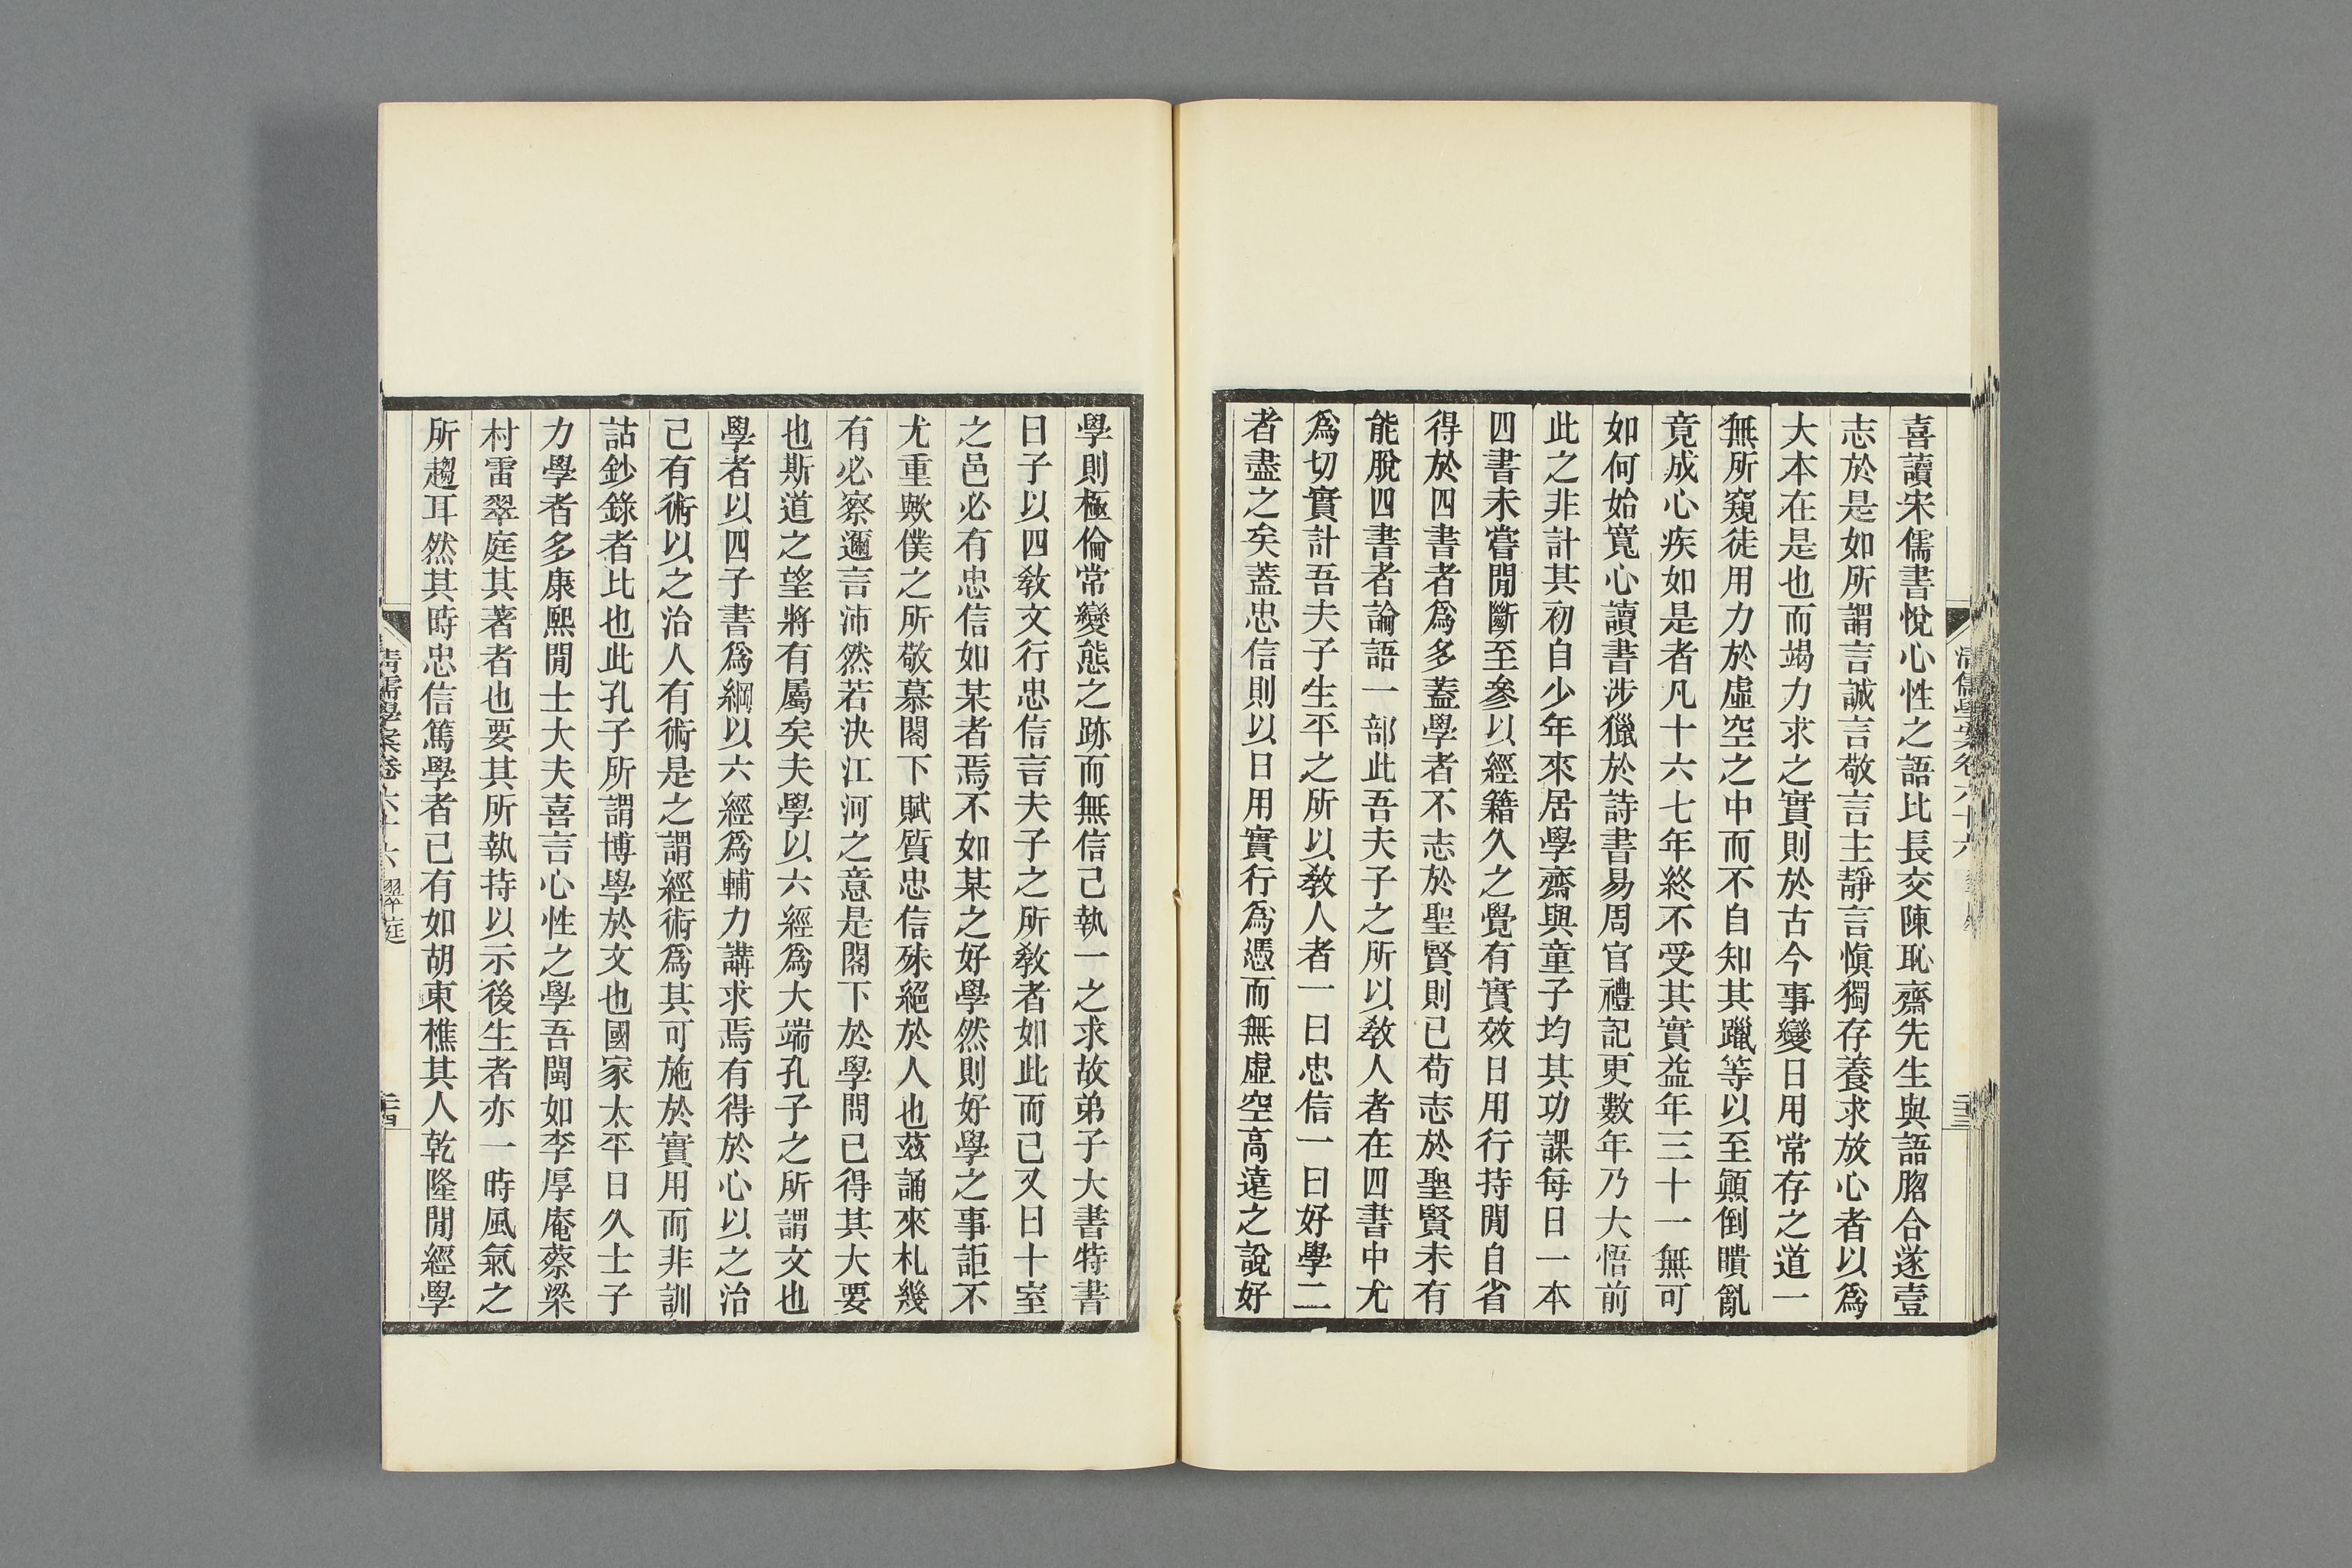 喜讀宋儒書悅心性之語比長交陳恥齋先生與語脗合遂壹
志於是如所謂言誠言敬言主靜言愼獨存養求放心者以爲
大本在是也而竭力求之實則於古今事變日用常存之道一
無所窺徒用力於虛空之中而不自知其躐等以至顚倒瞶亂
竟成心疾如是者凡十六七年終不受其實益年三十一無可
如何始寬心讀書涉獵於詩書易周官禮記更數年乃大悟前
此之非計其初自少年來居學齋與童子均其功課每日一本
四書未嘗閒斷至參以經籍久之覺有實效日用行持閒自省
得於四書者爲多蓋學者不志於聖賢則已苟志於聖賢未有
能脫四書者論語一部此吾夫子之所以敎人者在四書中尤
爲切實計吾夫子生平之所以敎人者一曰忠信一曰好學二
者盡之矣蓋忠信則以日用實行爲憑而無虛空高遠之說好
學則極倫常變態之跡而無信己執一之求故弟子大書特書
曰子以四敎文行忠信言夫子之所敎者如此而已又曰十室
之邑必有忠信如某者焉不如某之好學然則好學之事詎不
尤重歟僕之所敬慕閣下賦質忠信殊絕於人也茲誦來札幾
有必察邇言沛然若決江河之意是閣下於學問已得其大要
也斯道之望將有屬矣夫學以六經爲大端孔子之所謂文也
學者以四子書爲綱以六經爲輔力講求焉有得於心以之治
己有術以之治人有術是之謂經術爲其可施於實用而非訓
詁鈔錄者比也此孔子所謂博學於文也國家太平日久士子
力學者多康熙閒士大夫喜言心性之學吾閩如李厚庵蔡梁
村雷翠庭其著者也要其所執持以示後生者亦一時風氣之
所趨耳然其時忠信篤學者已有如胡東樵其人乾隆閒經學
清儒學案卷六十六 翠庭 二十四